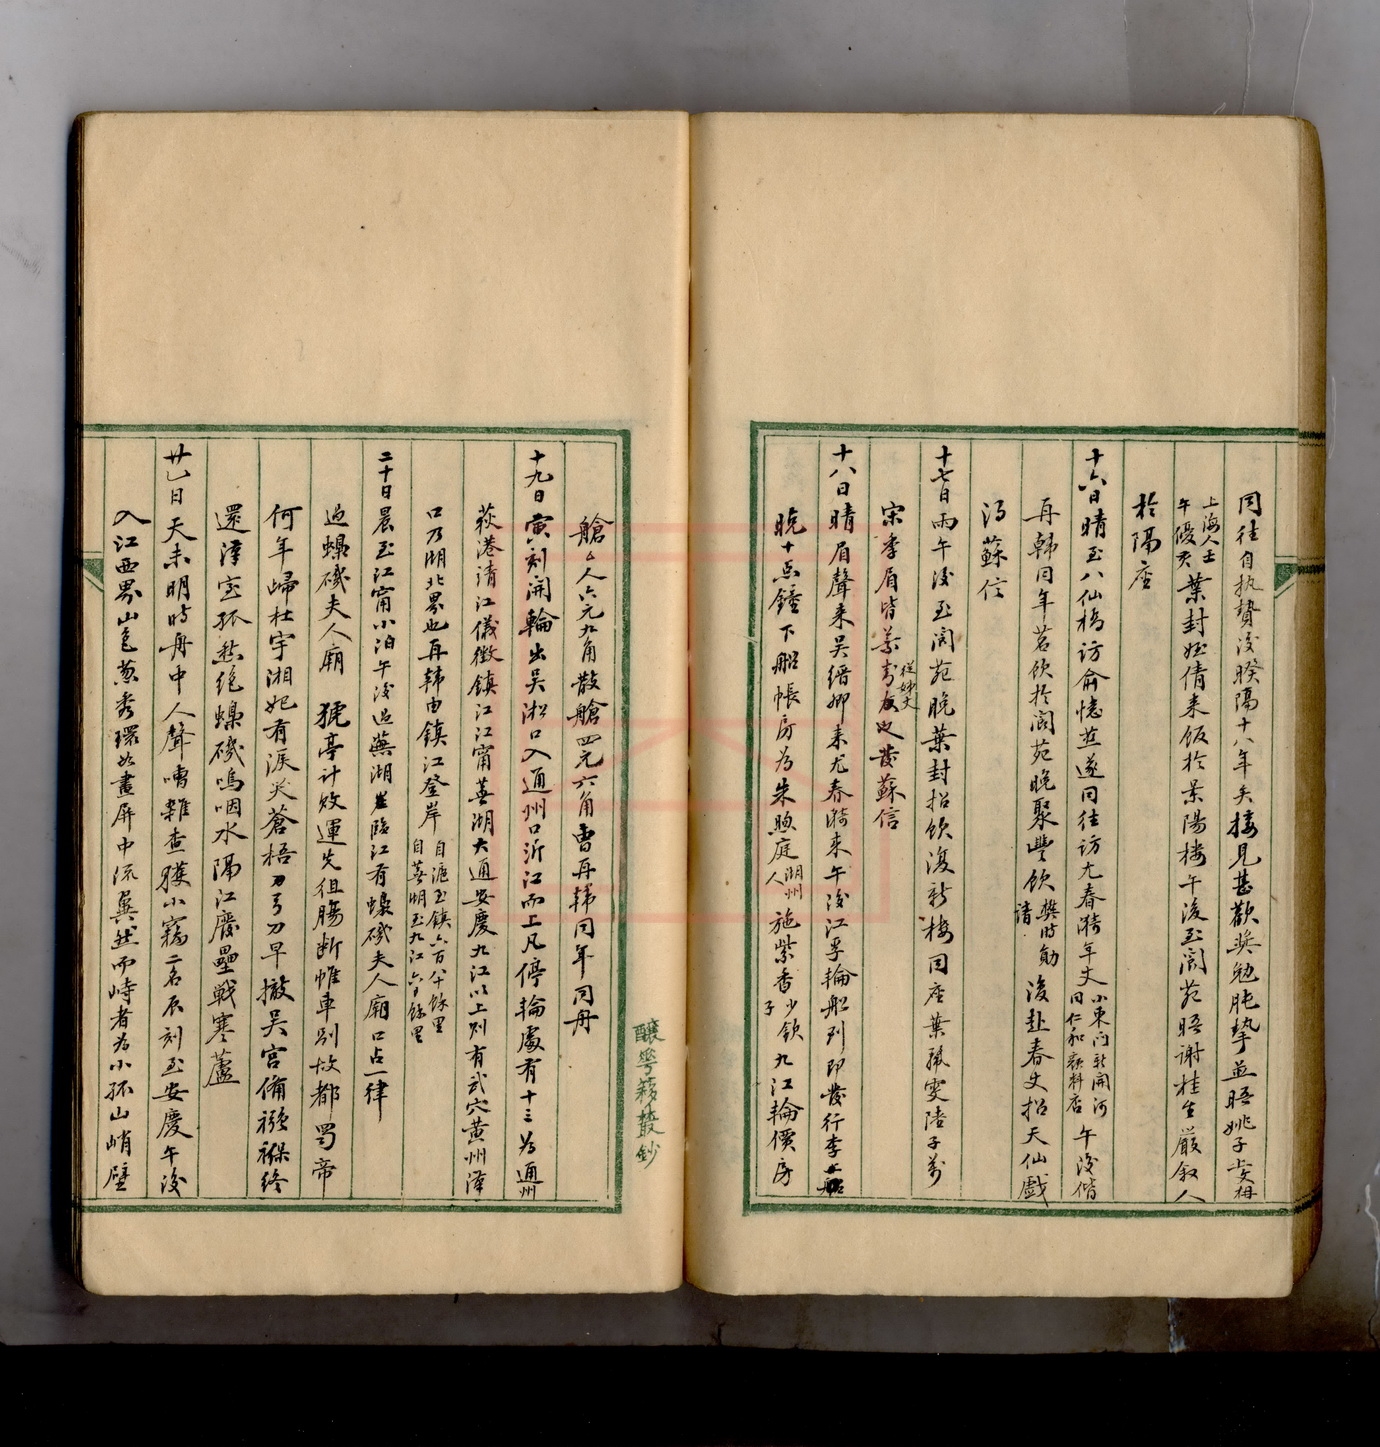 同往自执贄後暌隔十八年矣接見甚歡奨勉肫摯並晤姚子
上海人士午後葉封姪倩来飯扵景陽樓午後至閬苑晤謝桂生嚴叙人
扵隔座
十六日晴至八仙橋訪俞憶慈遂同往訪尤春漪年丈小東门新開河同仁和顔料店午後偕
再韩同年茗飲扵閬苑晚聚豐飲樊時勛請後赴春丈招天仙戲
得蘇信
十七日雨午後至閬苑晚葉封招飲復新楼同座葉雯陸子萬
宋季眉皆業従姊丈發蘇信
十八日晴眉聲来吴縉卿来尤春漪来午後江孚輪船到即發行李上船
晚十点鐘下船帳房为朱煦庭湖州人施紫香少欽子九江輪價房
艙每人六元九角散艙四元六角曹再韩同年同舟
十九日寅刻開輪出吴淞口入通州口泝江而上凡停輪處有十三为通州
荻港清江儀徴鎮江江甯蕪湖大通安慶九江以上則有武穴黄州澤
口乃湖北界也再韩由鎮江登岸自滬至鎮六百八十餘里自蕪湖至九江六百餘里
二十日晨至江甯小泊午後過蕪湖臨江有蟂磯夫人廟口占一律
過蟂磯夫人廟　猇亭計敗運先徂腸断帷車别故都蜀帝
何年歸杜宇湘妃有淚哭蒼梧刀弓刀早撤吴宫備襁褓终
還漢室孤愁绝蟂磯嗚咽水隔江廢壘戦寒蘆
廿一日天未明時舟中人聲嘈雜查獲小竊二名辰刻至安慶午後
入江西界山色葱秀環如畫屏中流巽然而峙者为小孤山峭壁
醸華簃叢鈔